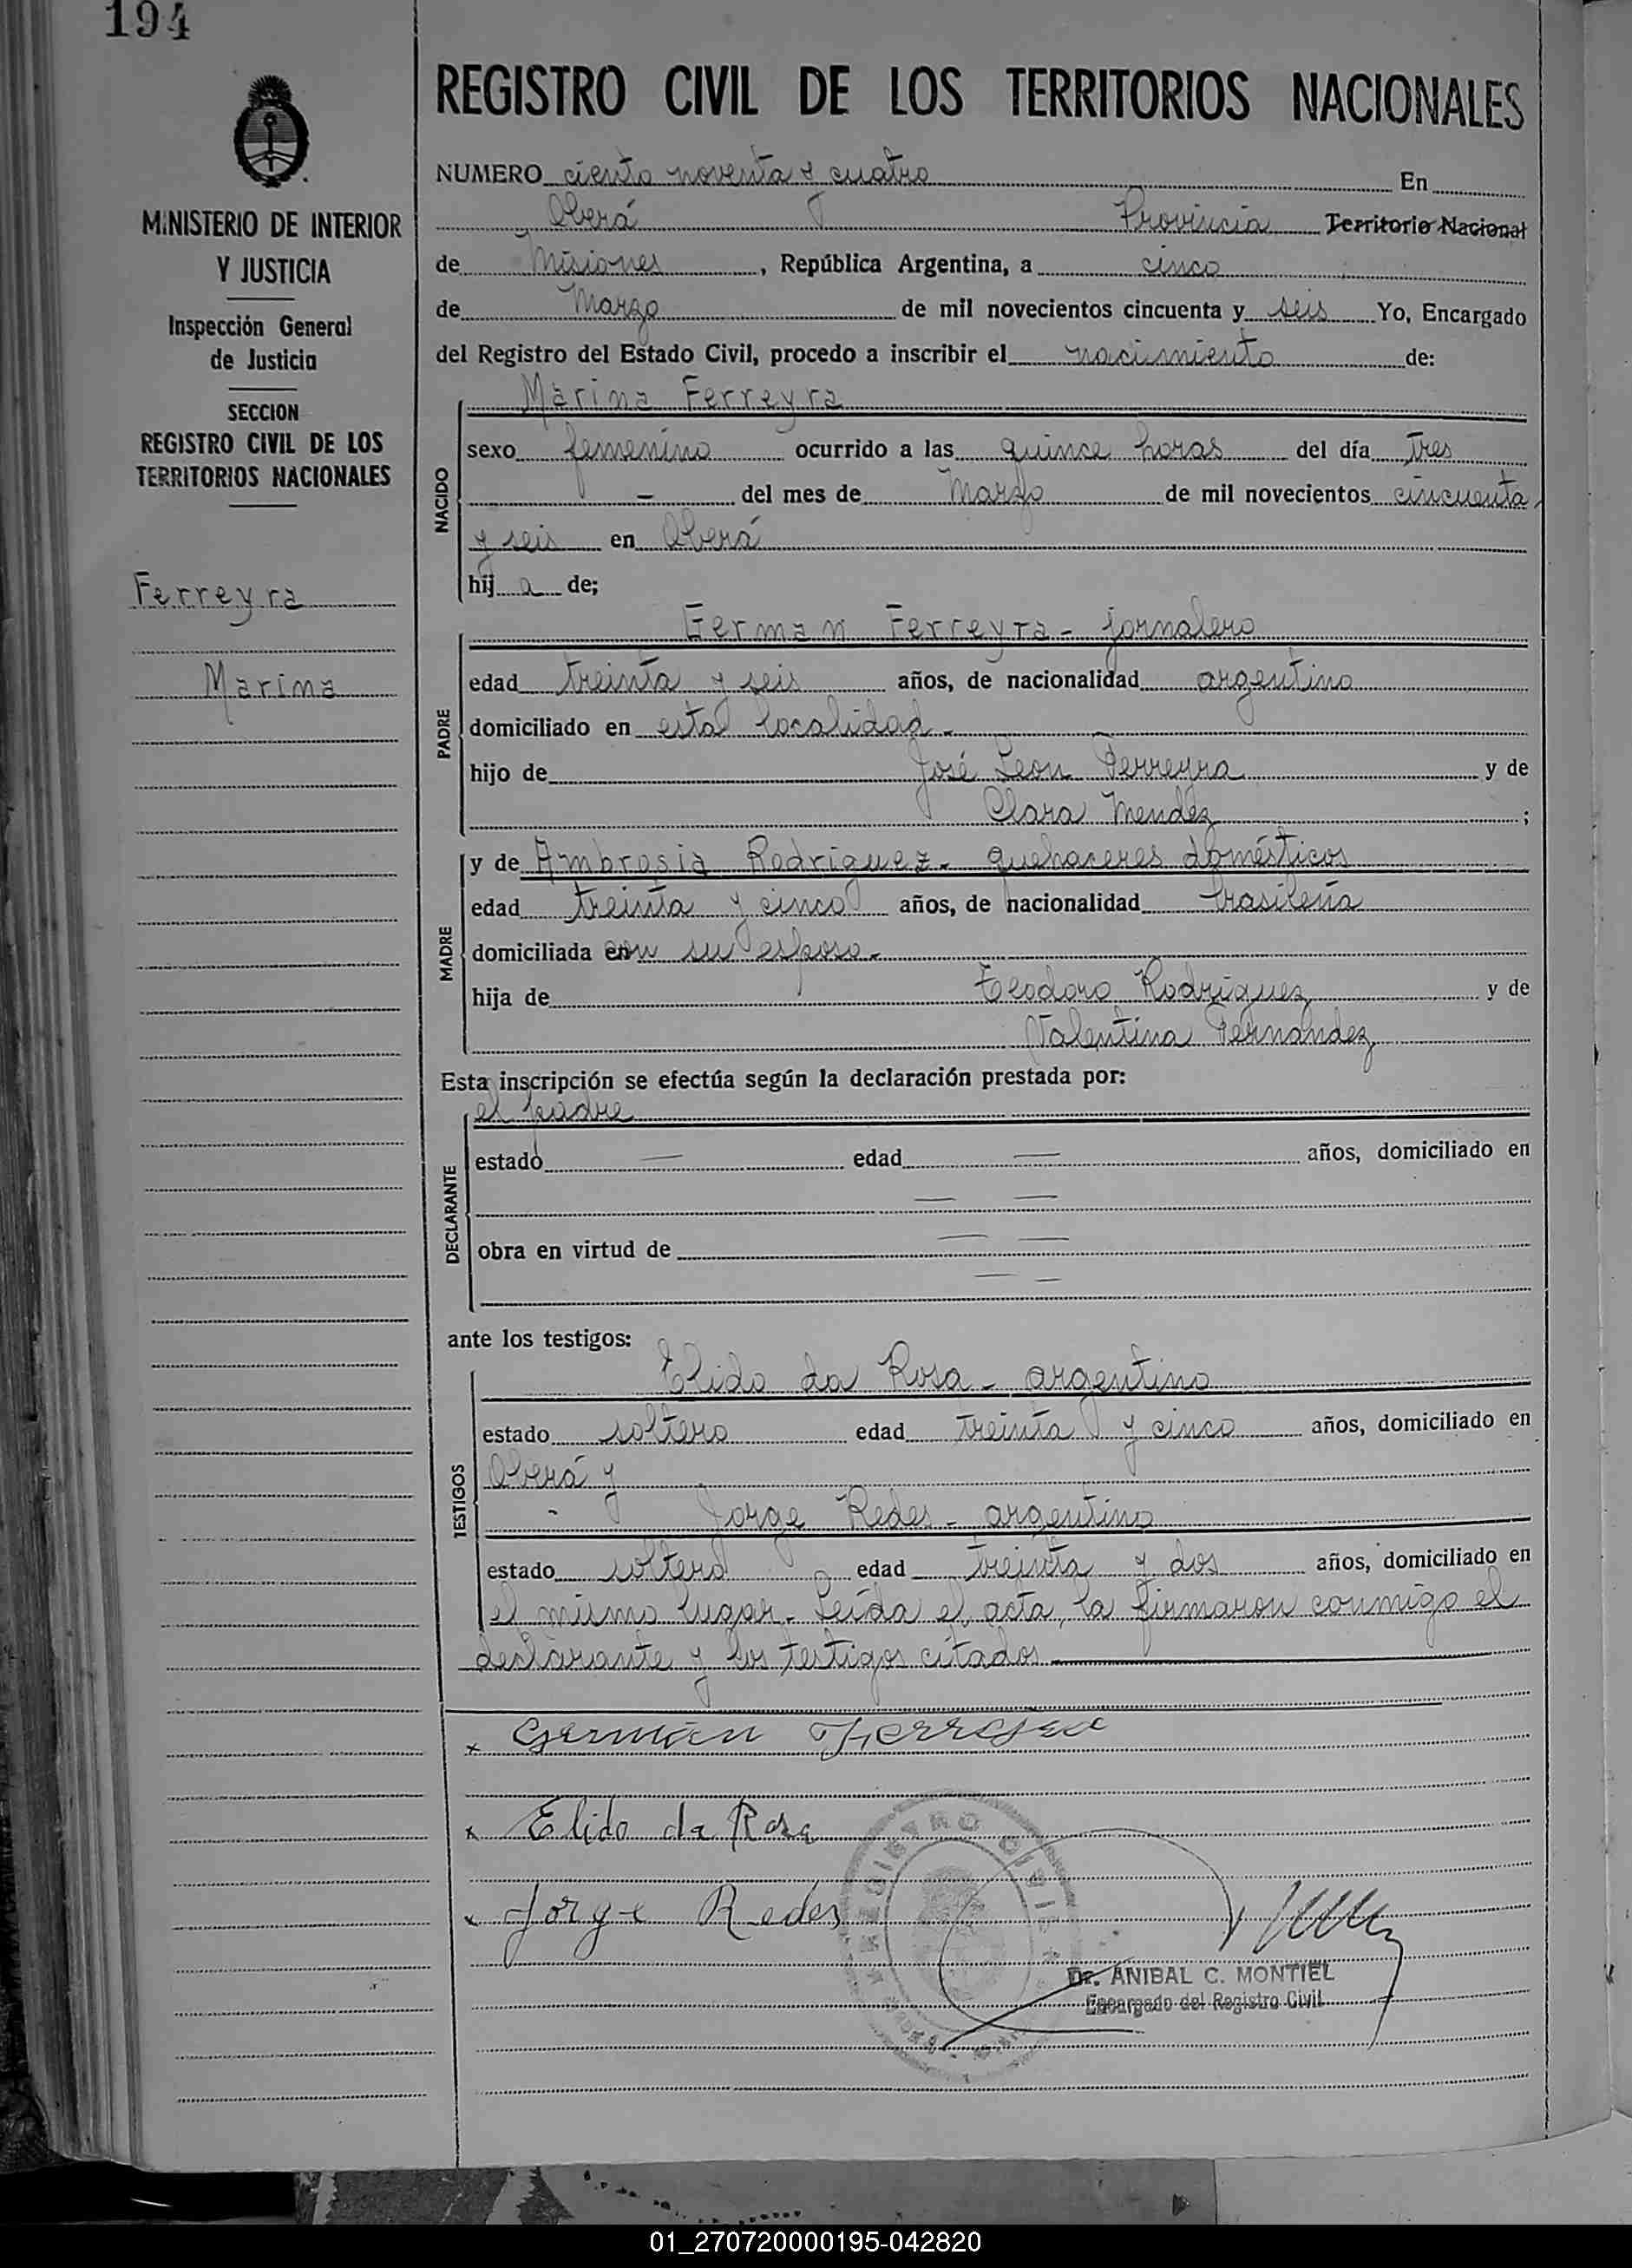 194
MINISTERIO DE INTERIOR
Y JUSTICIA
Inspección General
de Justicia
SECCION
REGISTRO CIVIL DE LOS
TERRITORIOS NACIONALES
Ferreyra
Marina
REGISTRO CIVIL DE LOS TERRITORIOS NACIONALES
NUMERO ciento noventa y cuatro En
Oberá Provincia Territorio Nacional
de Misiones, República Argentina, a cinco
de Marzo de mil novecientos cincuenta y seis Yo, Encargado
del Registro del Estado Civil, procedo a inscribir el nacimiento de:
NACIDO
Marina Ferreyra
sexo femenino ocurrido a las quince horas del día tres
— del mes de Marzo de mil novecientos cincuenta
y seis en Oberá
hij a de;
PADRE
German Ferreyra - jornalero
edad treinta y seis años, de nacionalidad argentino
domiciliado en esta localidad -
hijo de José Leon Ferreyra y de
Clara Mendez ;
MADRE
y de Ambrosia Rodriguez - quehaceres domésticos
edad treinta y cinco años, de nacionalidad brasileña
domiciliada en con su esposo -
hija de Teodoro Rodriguez y de
Valentina Fernandez
Esta inscripción se efectúa según la declaración prestada por:
DECLARANTE
el padre
estado — edad — años, domiciliado en
— —
obra en virtud de — —
— —
ante los testigos:
TESTIGOS
Elido da Rosa - argentino
estado soltero edad treinta y cinco años, domiciliado en
Oberá y
Jorge Redes - argentino
estado soltero edad treinta y dos años, domiciliado en
el mismo lugar - Leída el acta, la firmaron conmigo el
declarante y los testigos citados
x Germán Ferreyra
x Elido da Rosa
x Jorge Redes
REGISTRO CIVIL
Dr. ANIBAL C. MONTIEL
Encargado del Registro Civil
01_270720000195-042820